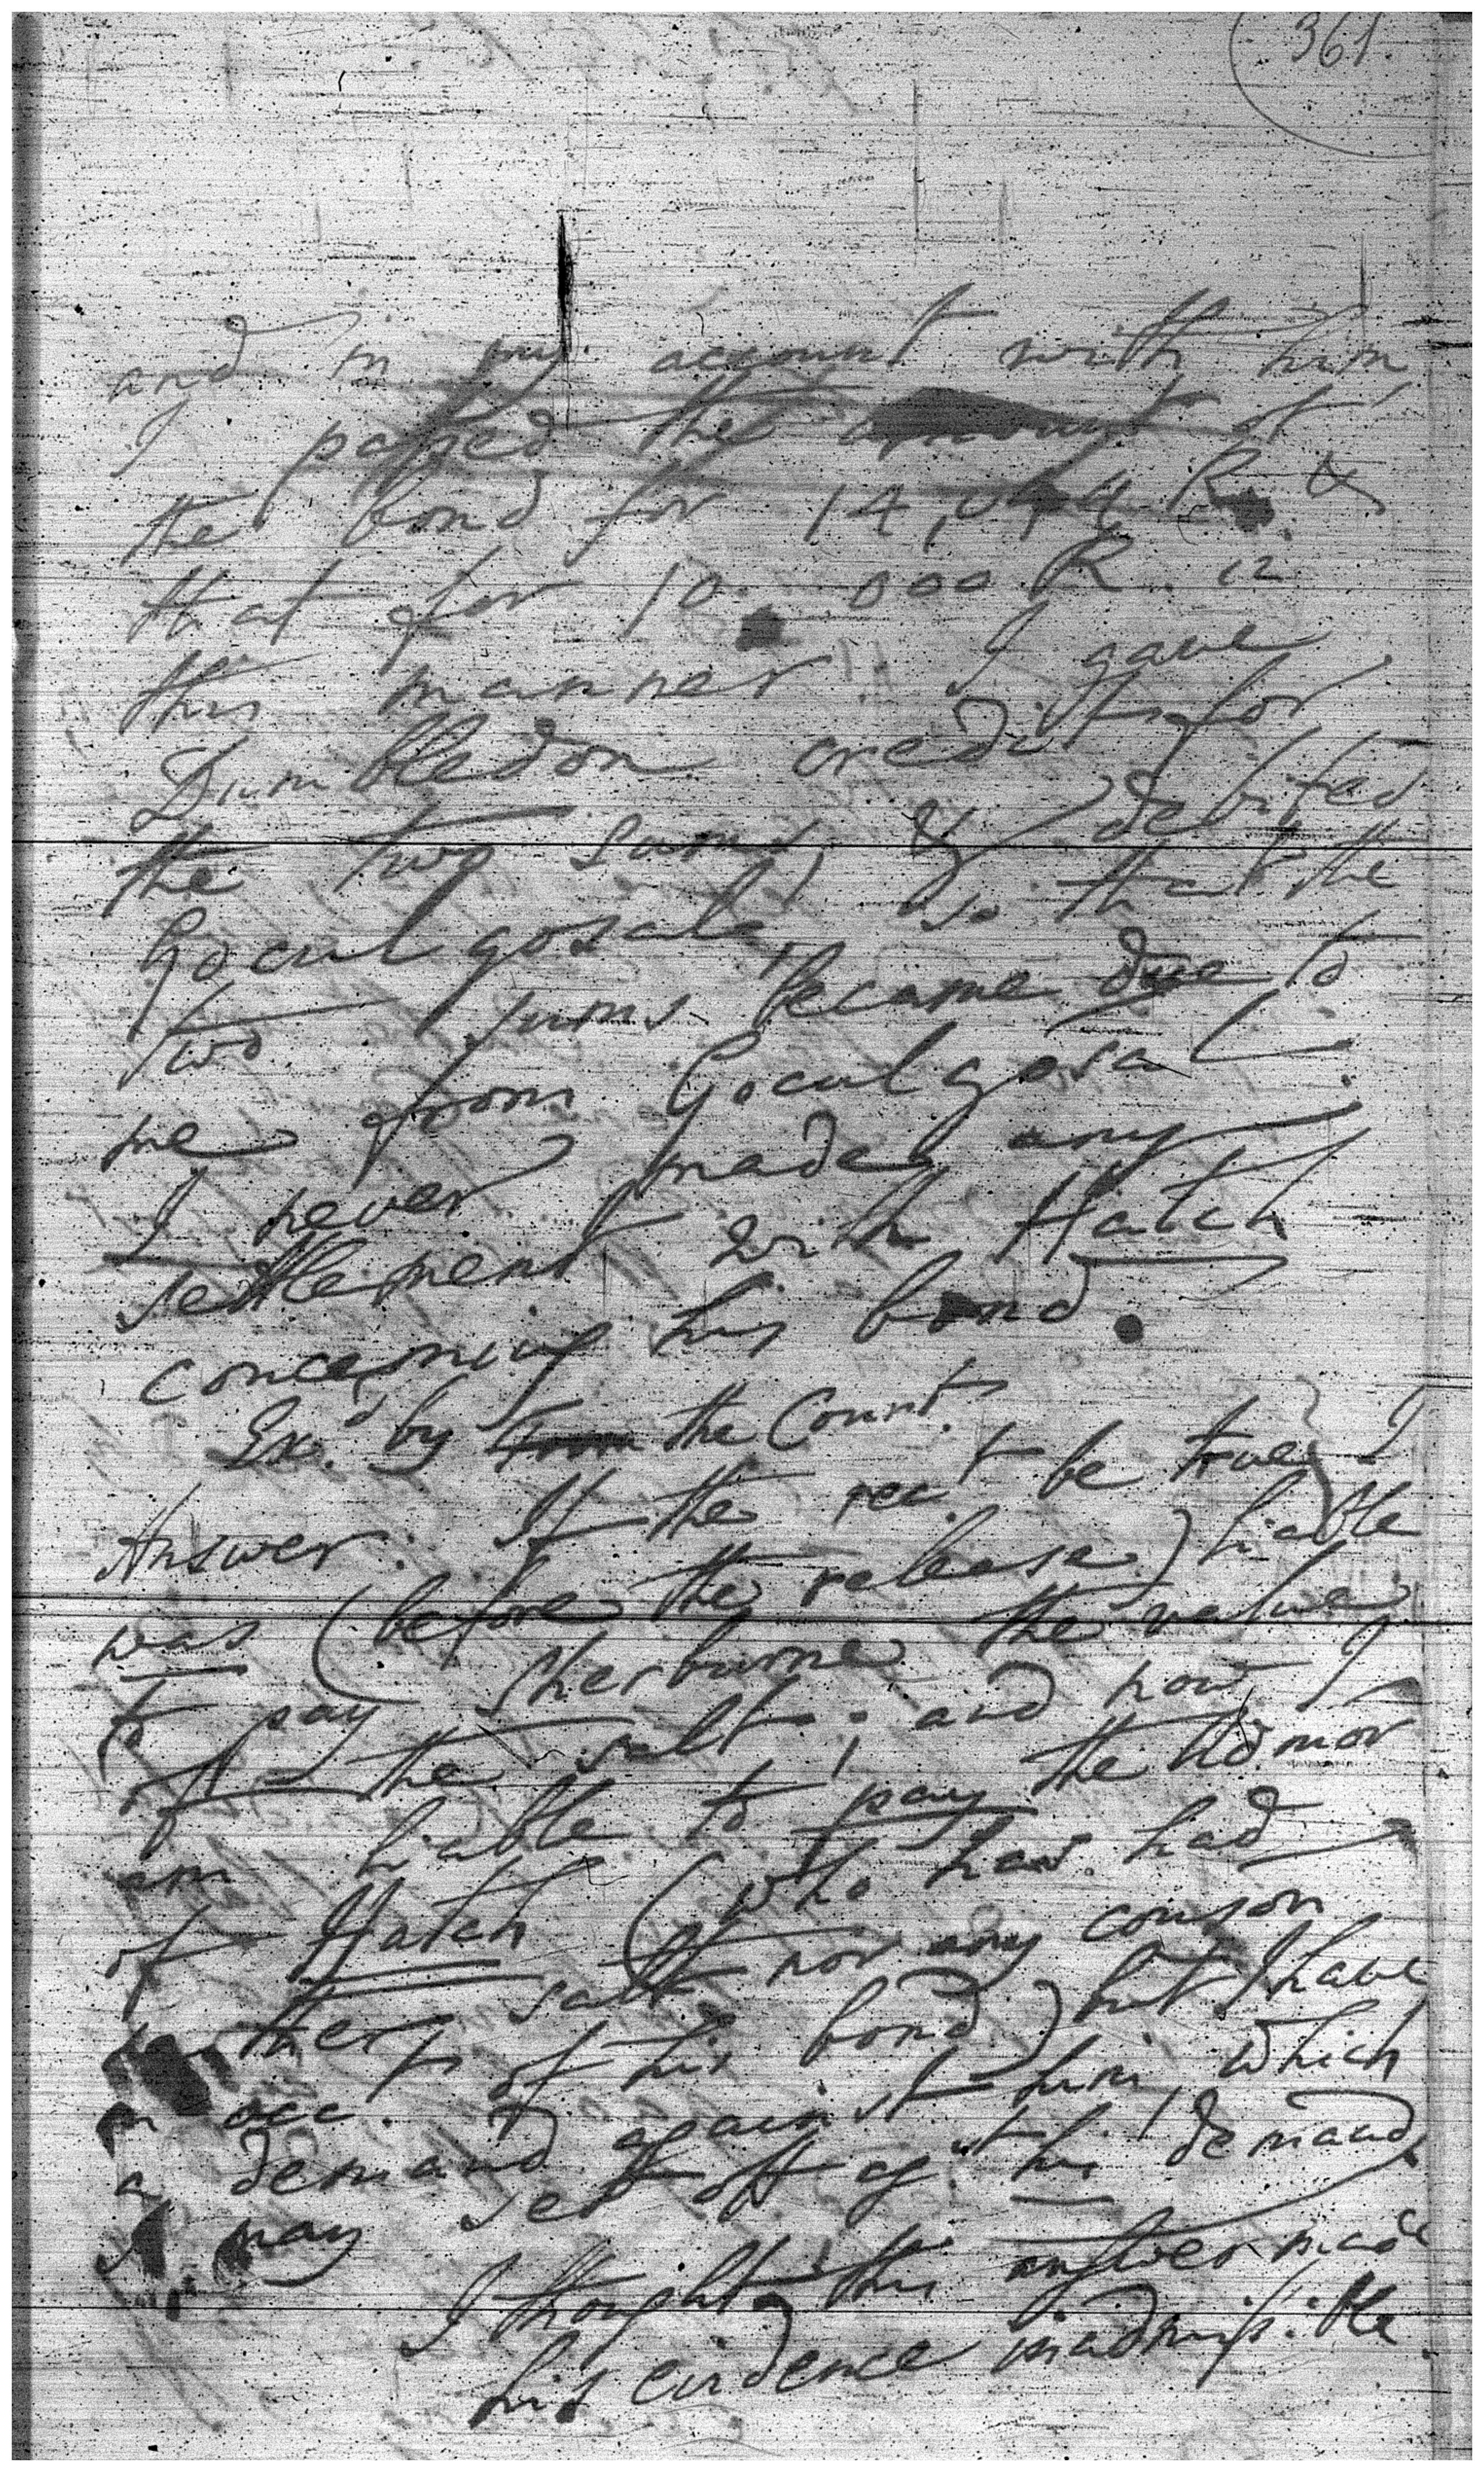 361
and in my account with him
I passed the amount of
the bond for 14, R &
that for 10.000 R. in
this manner I gave
Dumbledon credit for
the two sums & debited
Gocul gosaul, so that the
two sums became due to
me from Gocul gosaul.
I never made any
settlement with Hatch
concerning his bond.
Exd. by from the Court.
Answer: If the rect. be true I
was (before the release) liable
to pay Sherburne the value
of the salt; and now I
am liable to pay the admor
of Hatch (who has had
neither salt nor any conson
on acct. of his bond) but I have
a demand against him which
I may set off agst. his demand
I thought this answer made
his evidence inadmissible